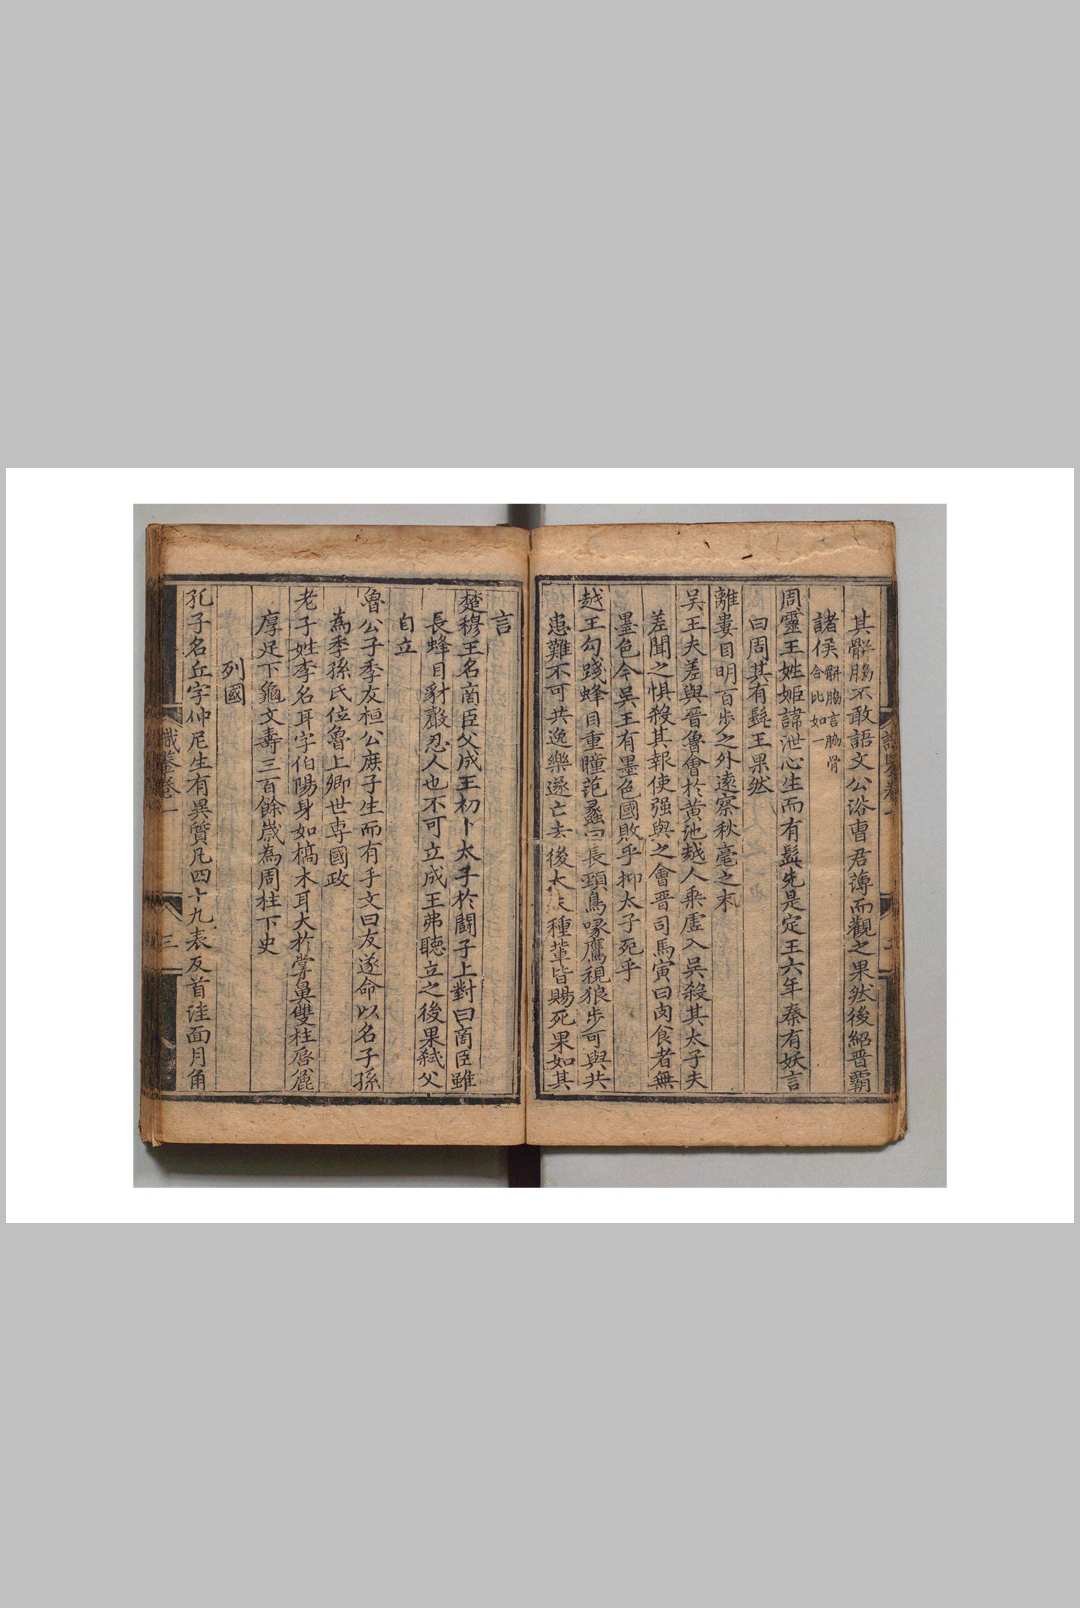 其骿脇不敢語文公浴曹君薄而觀之果然後紹晋霸
諸侯骿脇言脇骨合比如一
周靈王姓姬諱泄心生而有髭先是定王六年秦有妖言
曰周其有髭王果然
離婁目明百歩之外遠察秋毫之末
吳王夫差與晋魯會於黄池越人乘虚入吳殺其太子夫
差聞之惧殺其報使强與之會晋司馬寅曰肉食者無
墨色今吳王有墨色國敗乎抑太子死乎
越王勾踐蜂目重瞳長頸鳥喙鷹視狼歩可與共
患難不可共逸樂遂亡去後大種輩皆賜死果如其
言
楚穆王名啇臣父成王初卜太子於闘子上對曰啇臣雖
長蜂目豺聲忍人也不可立成王弗聽立之後果弑父
自立
魯公子季友桓公庻子生而有手文曰友遂命以名子孫
為季孫氏位魯上卿世専國政
老子姓李名耳字伯陽身如槁木耳大扵掌鼻雙柱唇
厚足下龜文壽三百餘嵗為周柱下史
列國
孔子名丘字仲尼生有異質凡四十九表反首洼面月角
鑒卷一
三